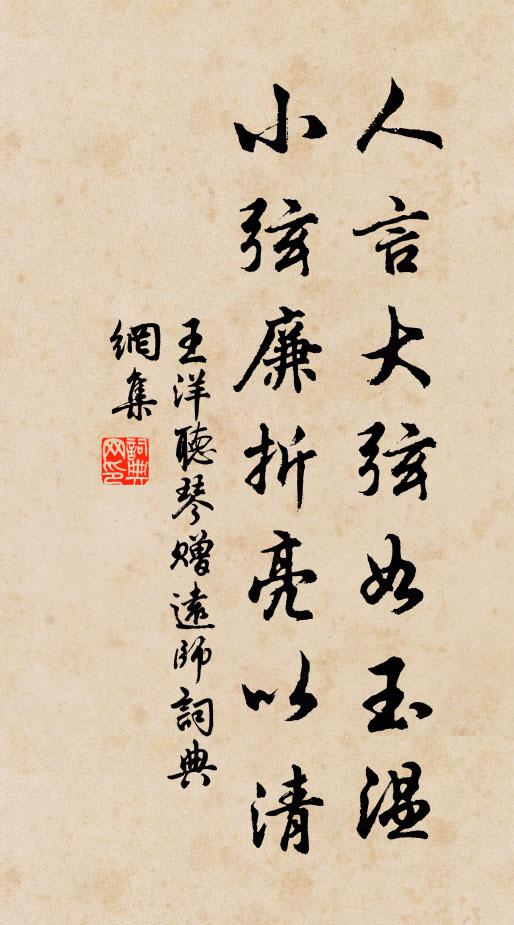 人言大弦如玉温
小弦廉折亮以清
王洋聽琴贈遠師詞典
網集
詞典网印